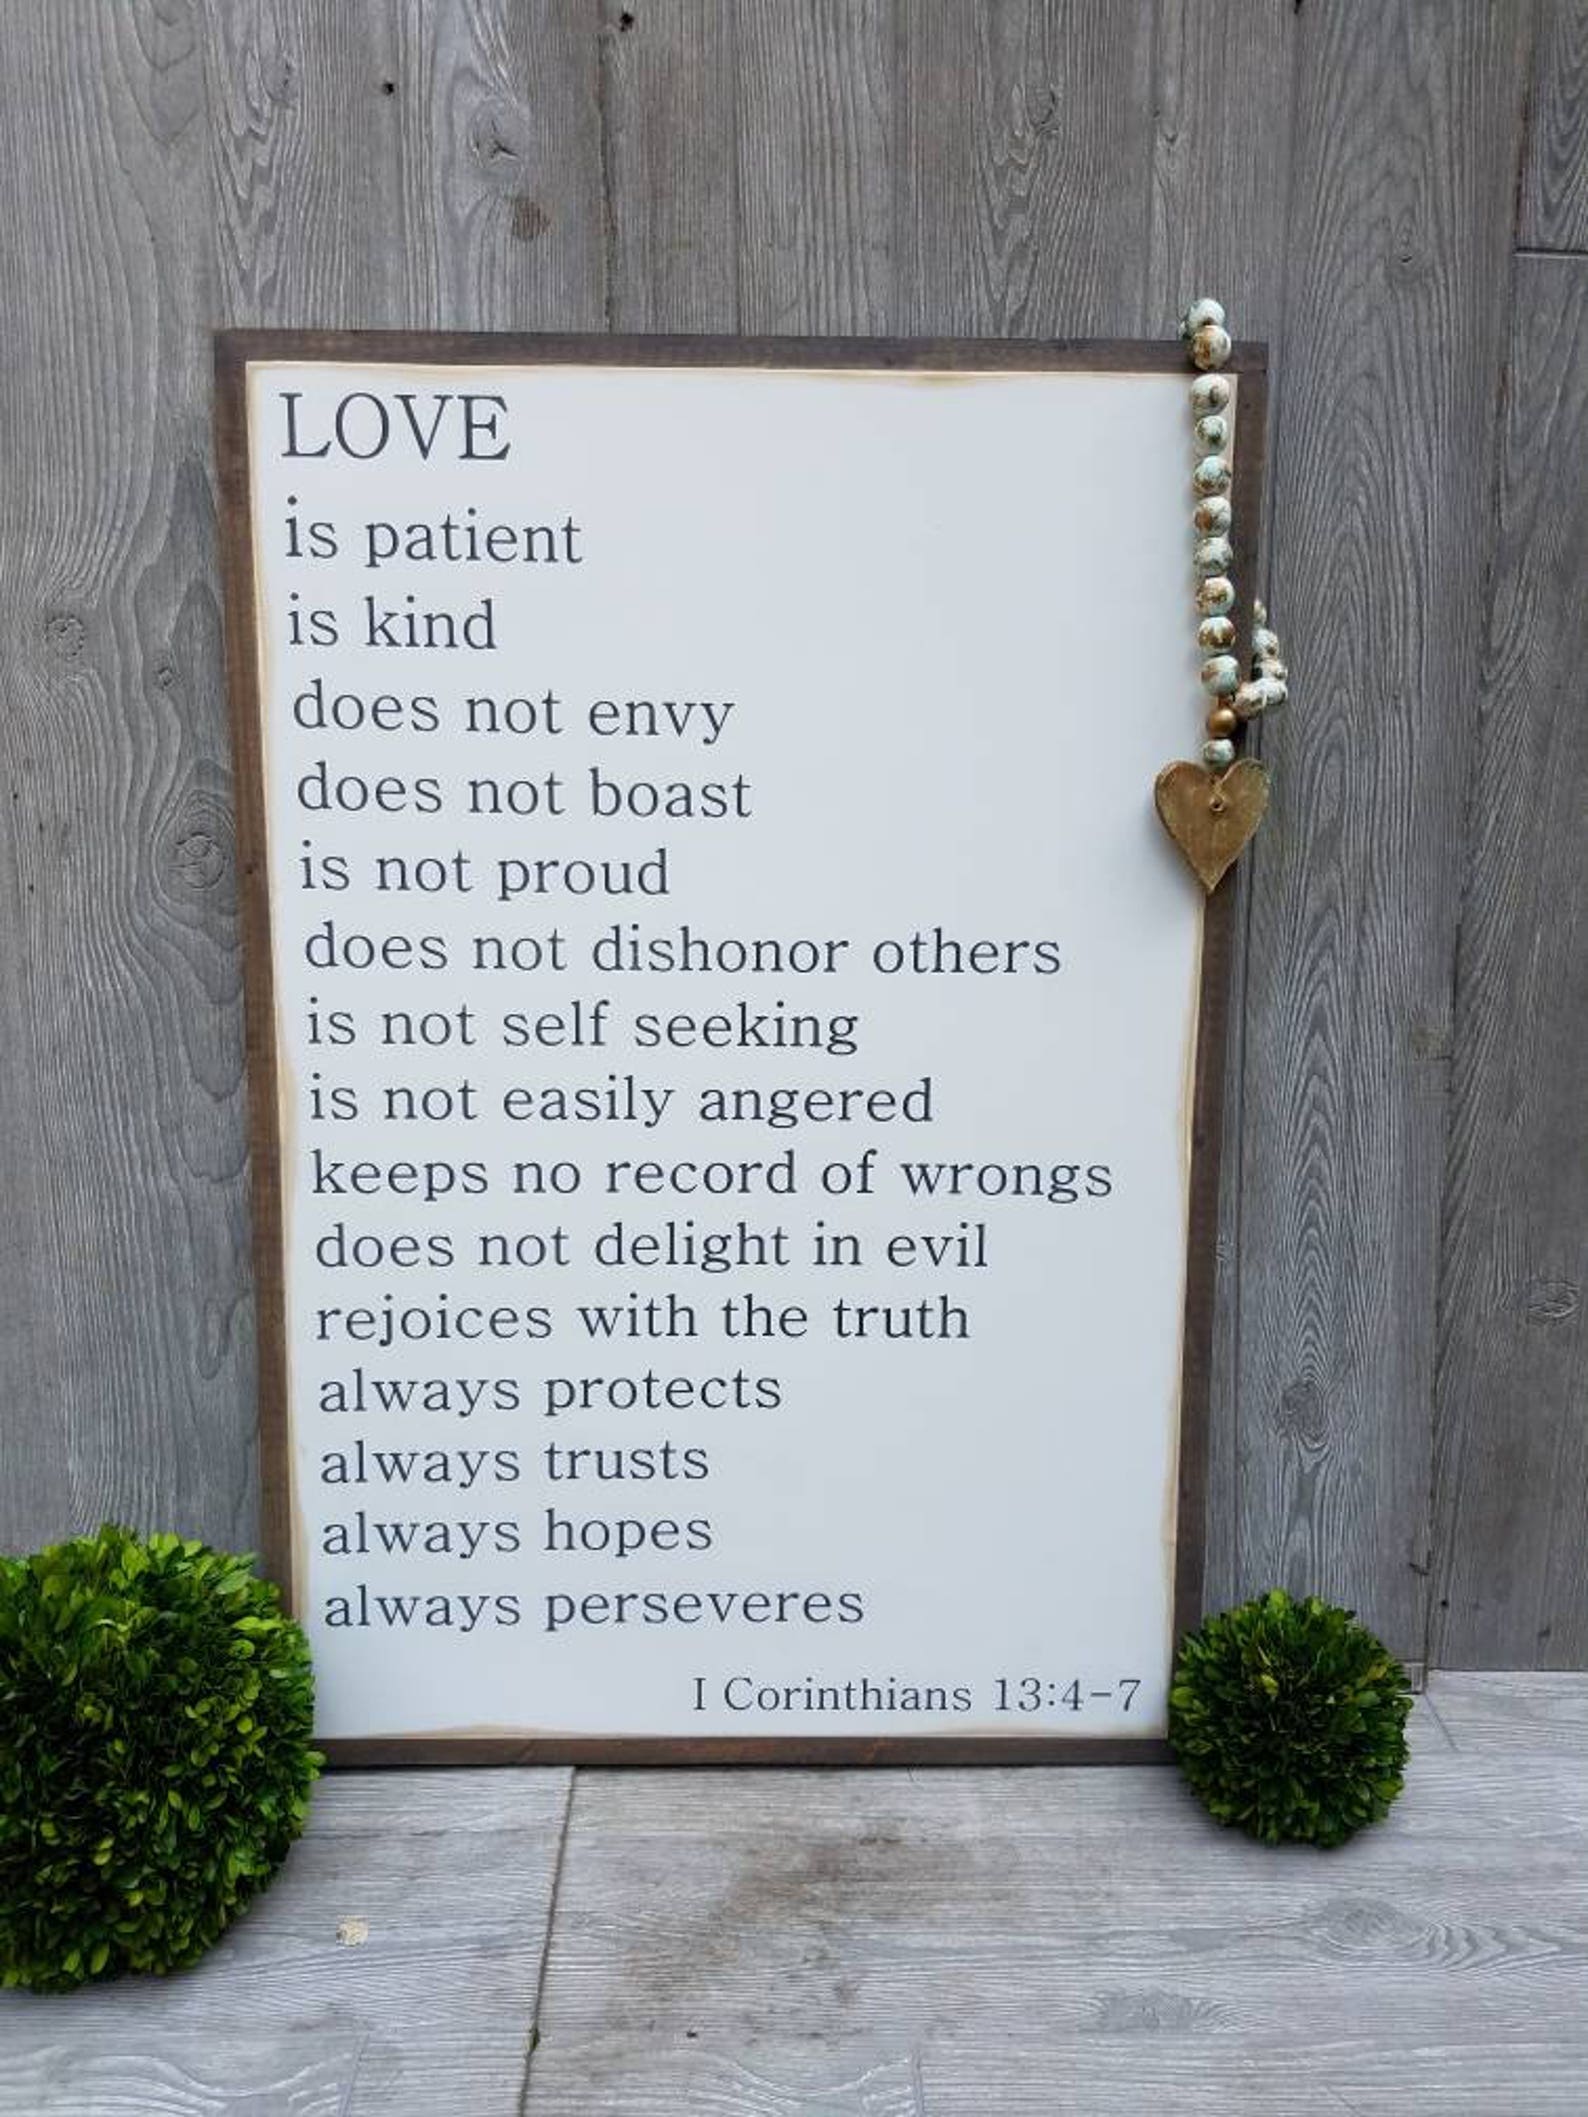 LOVE
is patient
is kind
does not envy
does not boast
is not proud
does not dishonor others
is not self seeking
is not easily angered
keeps no record of wrongs
does not delight in evil
rejoices with the truth
always protects
always trusts
always hopes
always perseveres
I Corinthians 13:4-7